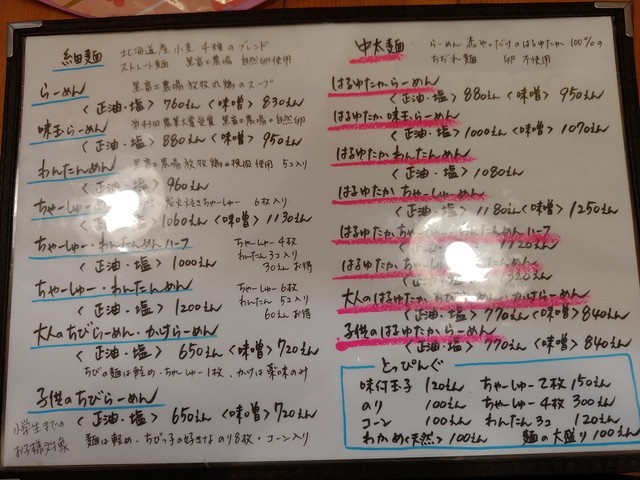 細麺 北海道産小麦4種のブレンド
ストレート麺 黒富士農場 自然卵使用
らーめん 黒富士農場放牧丸鶏のスープ
〈正油・塩〉760えん〈味噌〉830えん
味玉らーめん 農業大賞受賞 黒富士農場の自然卵
〈正油・塩〉880えん〈味噌〉950えん
わんたんめん 黒富士農場 放牧鶏の使用 5コ入り
〈正油・塩〉960えん
ちゃーしゅー ちゃーしゅー 6枚入り
1060えん〈味噌〉1130えん
ちゃーしゅー・わんたんめんハーフ ちゃーしゅー4枚
わんたん 3コ入り
〈正油・塩〉1000えん 30えんお得
ちゃーしゅー・わんたんめん ちゃーしゅー6枚
わんたん 5コ入り
〈正油・塩〉1200えん 60えんお得
大人のちびらーめん・かけらーめん
〈正油・塩〉650えん〈味噌〉720えん
ちびの麺は軽め・ちゃーしゅー1枚、かけは薬味のみ
子供のちびらーめん
〈正油・塩〉650えん〈味噌〉720えん
小学生までの
お子様対象
麺は軽め、ちびっ子の好きな のり8枚・コーン入り
中太麺 らーめん 赤やのだけのはるゆたか 100%の
ちぢれ麺 卵 不使用
はるゆたからーめん
〈正油・塩〉880えん〈味噌〉950えん
はるゆたか 味玉らーめん
〈正油・塩〉1000えん〈味噌〉1070えん
はるゆたか わんたんめん
〈正油・塩〉1080えん
はるゆたか ちゃーしゅーめん
〈正油・塩〉1180えん〈味噌〉1250えん
はるゆたか ちゃーしゅー わんたんめんハーフ
1120えん
はるゆたか ちゃーしゅー わんたんめん
〈正油・塩〉1320えん
大人のはるゆたか ちびらーめん・かけらーめん
〈正油・塩〉770えん〈味噌〉840えん
子供のはるゆたからーめん
〈正油・塩〉770えん〈味噌〉840えん
とっぴんぐ
味付玉子 120えん ちゃーしゅー2枚 150えん
のり 100えん ちゃーしゅー4枚 300えん
コーン 100えん わんたん3コ 120えん
わかめ〈天然〉100えん 麺の大盛り 100えん